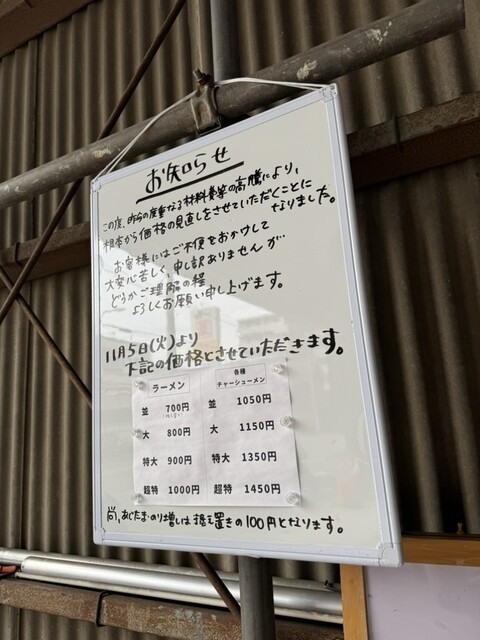 お知らせ
この度、昨今の度重なる材料費等の高騰により、
根本から価格の見直しをさせていただくことに
なりました。
お客様にはご不便をおかけして
大変心苦しく、申し訳ありませんが…
どうかご理解の程
よろしくお願い申し上げます。
11月5日(火)より
下記の価格とさせていただきます。
ラーメン
各種
チャーシューメン
並 700円 並 1050円
大 800円 大 1150円
特大 900円 特大 1350円
超特 1000円 超特 1450円
尚、あじたま・のり増しは据え置きの100円となります。